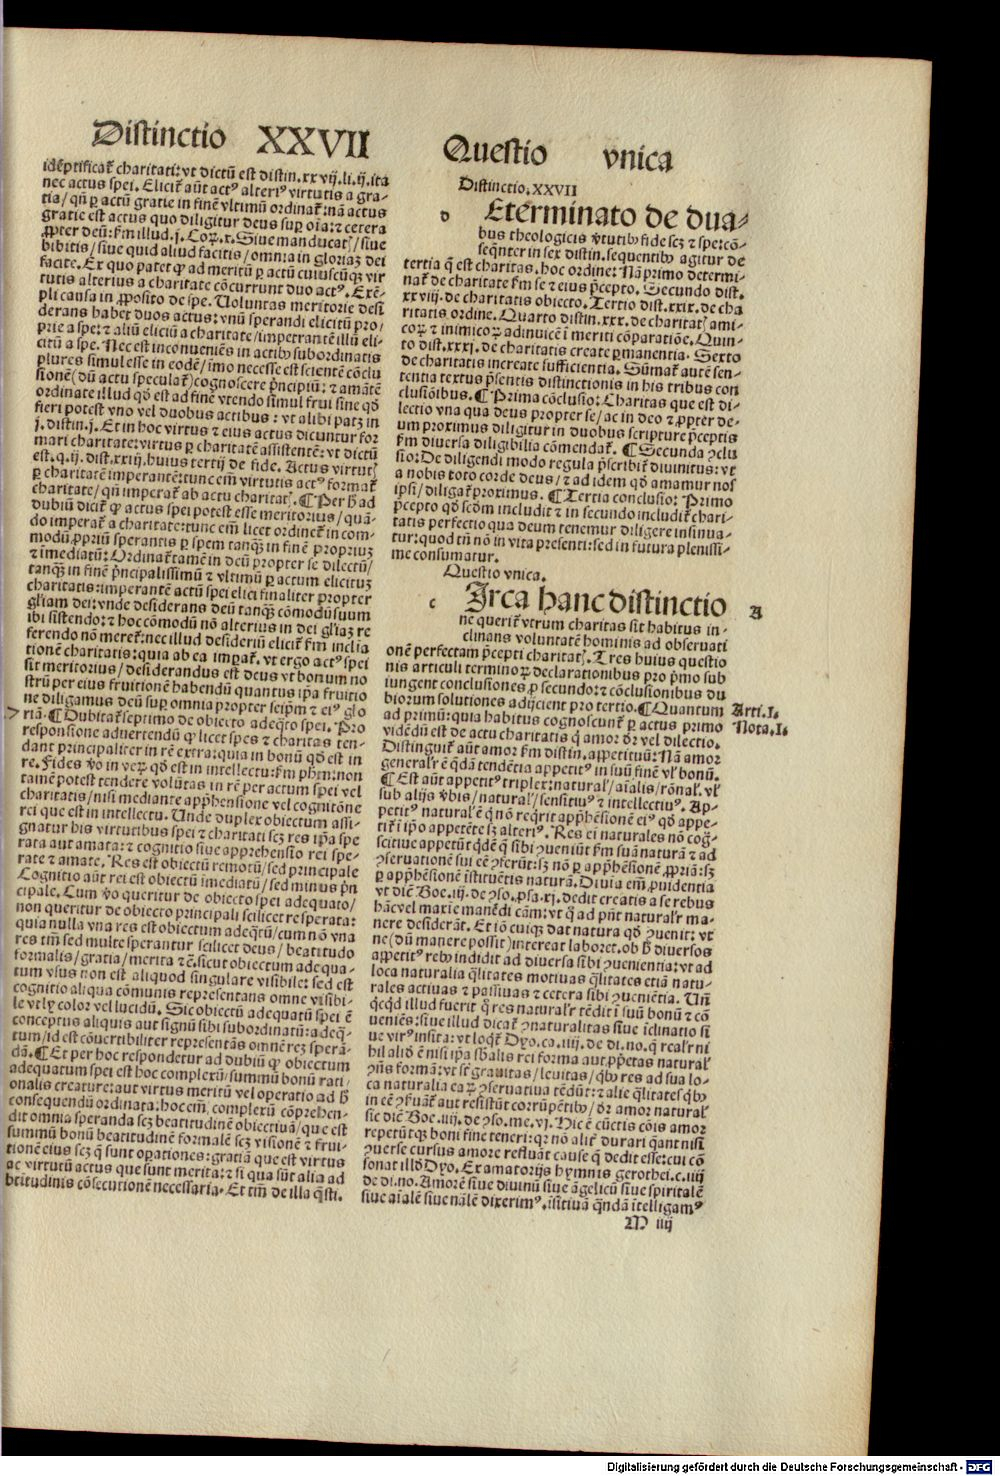 Distinctio XXVII
idēptificat̄ charitati: vt dictū est distin. xxvij. li. ij. ita
nec actus spei. Elicit̄ aūt actꝰ alteriꝰ virtutis a gra-
tia/ qn̄ ꝑ actū gratie in finē vltimū ordinat̄: nā actus
gratie est actus quo diligitur deus suꝑ oīa: ⁊ cetera
ꝓpter deū: fm̄ illud. j. Coꝝ. x. Siue manducatꝭ/ siue
bibitis/ siue quid aliud facitis/ omīa in gloriaꝫ dei
facite. Ex quo patet ꝙ ad meritū ꝑ actū cuiuscūqꝫ vir
tutis alterius a charitate cōcurrunt duo actꝰ. Exē-
pli causa in ꝓposito de spe. Uoluntas meritorie desi
derans habet duos actus: vnū sperandi elicitū pro/
prie a spe: ⁊ aliū eliciū a charitate/ impetrantē illū eli-
citū a spe. Nec est inconueniēs in actibꝰ subordinatis
plures simul esse in eodē/ imo necesse est scientē cōclu
sionē (dū actu speculat̄) cognoscere p̄ncipiū: ⁊ amātē
ordinate illud qd̄ est ad finē vtendo simul frui sine qd̄
fieri potest vno vel duobus actibus: vt alibi patꝫ in
j. distin. j. Et in hoc virtus ⁊ eius actus dicuntur for
mari charitate: virtus ꝑ charitatē assistentē: vt dictū
est. q. ij. dist. xxiij. huius tertij de fide. Actus virtutꝭ
ꝑ charitatē imperantē: tunc em̄ virtutis actꝰ format̄
charitate/ qn̄ imperat̄ ab actu charitatꝭ. ¶ Per h̄ ad
dubiū dicit̄ ꝙ actus spei potest esse meritorius/ quā-
do imperat̄ a charitate: tunc em̄ licet ordinet̄ in com-
modū ꝓpriū sperantis ꝑ spem tanqꝫ in finē propriuꝫ
⁊ īmediatū: Ordinat̄ tamē in deū propter se dilectū/
tanqꝫ in finē p̄ncipalissimū ⁊ vltimū ꝑ actum elicituꝫ
charitatis: imperantē actū spei elici finaliter propter
gl̄iam dei: vnde desiderans deū tanqꝫ cōmodū suum
ibi sistendo: ⁊ hoc cōmodū nō alterius in dei gl̄iaꝫ re
ferendo nō meret̄: nec illud desideriū elicit̄ fm̄ inclia
tionē charitatis: quia ab ea imꝑat̄. vt ergo actꝰ spei
sit meritorius/ desiderandus est deus vt bonum no
strū per eius fruitionē habendū quantus ip̄a fruitio
ne diligamus deū suꝑ omnia propter seip̄m ⁊ eiꝰ glo
riā. ¶ Dubitat̄ septimo de obiecto adeq̄to spei. Pro
responsione aduertendū ꝙ licet spes ⁊ charitas ten-
dant principaliter in rē extra: quia in bonū qd̄ est in
re. Fides v̄o in veꝝ qd̄ est in intellectu: fm̄ ph̄m: non
tamē potest tendere volūtas in rē per actum spei vel
charitatis/ nisi mediante app̄hensione vel cognitōne
rei que est in intellectu. Unde duplex obiectum assi-
gnatur his virtutibus spei ⁊ charitati scꝫ res ip̄a spe
rata aut amata: ⁊ cognitio siue apprehensio rei spe-
rate ⁊ amate. Res est obiectū remotū/ sed principale
Cognitio aūt rei est obiectū īmediatū/ sed minus p̄n
cipale. Cum v̄o queritur de obiecto spei adequato/
non queritur de obiecto principali scilicet resperata:
quia nulla vna res est obiectum adeq̄tū/ cum nō vna
res tm̄ sed multe sperantur scilicet deus/ beatitudo
formalis/ gratia/ merita ⁊ c̄. sicut obiectum adequa-
tum vsus non est aliquod singulare visibile: sed est
cognitio aliqua cōmunis representans omne visibi-
le vtlꝫ color vel lucidū. Sic obiectū adequatū spei ē
conceptus aliquis aut signū sibi subordinatū: adeq̄-
tum/ id est cōuertibiliter representās omnē reꝫ sperā-
dā. ¶ Et per hoc respondetur ad dubiū ꝙ obiectum
adequatum spei est hoc complexū/ summū bonū rati/
onalis creature: aut virtus meritū vel operatio ad h̄
consequendū ordinata: hoc em̄ complexū cōprehen-
dit omnia speranda scꝫ beatitudinē obiectiuā/ que est
summū bonū beatitudinē formalē scꝫ visionē ⁊ frui-
tionē eius scꝫ q̄ sunt oꝑationes: gratiā que est virtus
ac virtutū actus que sunt merita: ⁊ si qua sūt alia ad
bt̄itudinis cōsecutionē necessaria. Et tm̄ de illa q̄sti.
Questio vnica
Distinctio. XXVII
d Eterminato de dua-
bus theologicis v̄tutibꝰ fide scꝫ ⁊ spe: cō-
seqn̄ter in sex distin. sequentibꝰ agitur de
tertia q̄ est charitas. hoc ordine: Nā primo determi-
nat̄ de charitate fm̄ se ⁊ eius p̄cepto. Secundo dist.
xxviij. de charitatis obiecto. Tertio dist. xxix. de cha
ritatis ordine. Quarto distin. xxx. de charitatꝭ ami-
coꝝ ⁊ inimicoꝝ adinuicē ī meriti cōparatiōe. Quin-
to dist. xxxj. de charitatis create ꝑmanentia. Sexto
de charitatis increate sufficientia. Sūmat̄ autē sen-
tentia textus p̄sentis distinctionis in his tribus con
clusiōibus. ¶ Prima cōclusio: Charitas que est di-
lectio vna qua deus propter se/ ac in deo ⁊ ꝓpter de-
um proximus diligitur in duobus scripture p̄ceptis
fm̄ diuersa diligibilia cōmendat̄. ¶ Secunda ꝯclu
sio: De diligendi modo regula p̄scribit̄ diuinitus: vt
a nobis toto corde deus/ ⁊ ad idem qd̄ amamur nos
ipsi/ diligat̄ proximus. ¶ Tertia conclusio: Primo
p̄cepto qd̄ scd̄m includit ⁊ in secundo includit̄ chari-
tatis perfectio qua deum tenemur diligere insinua-
tur: quod tn̄ nō in vita presenti: sed in futura plenissi-
me consumatur.
Questio vnica.
c Irca hanc distinctio A
ne querit̄ vtrum charitas sit habitus in-
clinans voluntatē hominis ad obseruati
onē perfectam p̄cepti charitatꝭ. Tres huius questio
nis articuli terminoꝝ declarationibus pro p̄mo sub
iungent conclusiones ꝓ secundo: ⁊ cōclusionibus du
biorum solutiones adijcient pro tertio. ¶ Quantum Arti. I.
ad primū: quia habitus cognoscunt̄ ꝑ actus primo Nota. I.
vidēdū est de actu charitatis q̄ amor dr̄ vel dilectio.
Distinguit̄ aūt amor fm̄ distin. appetituū: Nā amor
general̄r ē q̄dā tendētia appetitꝰ in suū finē vl̄ bonū.
¶ Est aūt appetitꝰ triplex: natural̄/ aīalis/ rōnal̄. vl̄
sub alijs v̄bis/ natural̄/ sensitiuꝰ ⁊ intellectiuꝰ. Ap-
petitꝰ natural̄ ē q̄ nō req̄rit app̄hēsionē eiꝰ qd̄ appe-
tit̄ ī ip̄o appetēte sꝫ alteriꝰ. Res ei naturales nō coḡ-
scitiue appetūt q̄dē q̄ sibi ꝯueniūt fm̄ suā naturā ⁊ ad
ꝯseruationē sui eē ꝯferūt: sꝫ nō ꝑ app̄hēsionē ꝓpriā: sꝫ
ꝑ app̄hēsionē īstituētis naturā. Diuīa em̄ ꝓuidentia
vt dicit Boe. iij. de ꝯso. ꝓsa. xj. dedit creatis a se rebus
hācvel maxīe manēdi cām: vt q̄ ad pn̄t natural̄r ma-
nere desiderāt. Et iō cuiqꝫ dat natura qd̄ ꝯuenit: vt
ne (dū manere possit) intereat laboret. ob h̄ diuersos
appetitꝰ rebꝰ indidit ad diuersa sibi ꝯuenientia: vt ad
loca naturalia q̄litates motiuas q̄litates etiā natu-
rales actiuas ⁊ passiuas ⁊ cetera sibi ꝯueniētia. Un̄
q̄cqd̄ illud fuerit q̄ res natural̄r tēdit ī suū bonū ⁊ cō
ueniēs: siue illud dicat̄ ꝯnaturalitas siue īclinatio si
ue virꝰ insita: vt loqt̄ Dyo. ca. iiij. de di. no. q̄ real̄r ni
hil aliō ē nisi ip̄a sb̄alis rei forma aut ꝓp̄etas natural̄
ꝯn̄s formā: vt st̄ grauitas/ leuitas/ qb̄ꝰ res ad sua lo-
ca naturalia eaꝝ ꝯseruatiua tēdūt: ⁊ alie q̄litates qb̄ꝰ
in eē ꝯẜuāt̄ aut resistūt corrūpētibꝰ/ dr̄ amor natural̄
sic dicit Boe. iiij. de ꝯso. me. vj. Hic ē cūctis cōis amor
repetūtqꝫ boni fine teneri: qꝛ nō alit̄ durari q̄ant nisi
ꝯuerse cursus amore refluāt cause q̄ dedit esse: cui cō
sonat illd̄ Dyo. Ex amatorijs hymnis gerothei. c. iiij
de di. no. Amorē siue diuinū siue āgelicū siue spiritalē
siue aīalē siue nālē dixerimꝰ. isitiuā q̄ndā ītelligamꝰ
M iiij
Digitalisierung gefördert durch die Deutsche Forschungsgemeinschaft - DFG